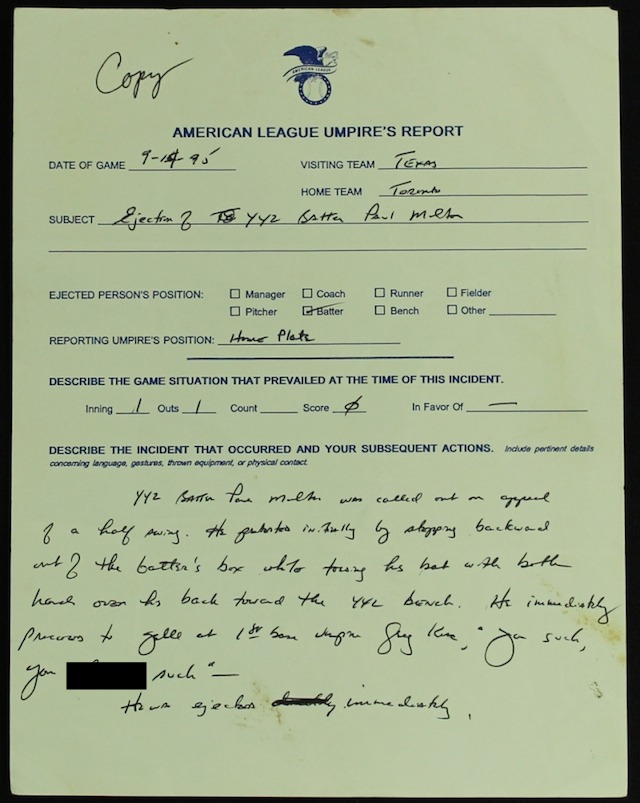 Copy
AMERICAN LEAGUE
AMERICAN LEAGUE UMPIRE'S REPORT
DATE OF GAME 9-14-95 VISITING TEAM TEXAS
HOME TEAM Toronto
SUBJECT Ejection of YYZ Batter Paul Molitor
EJECTED PERSON'S POSITION: Manager Coach Runner Fielder
Pitcher Batter Bench Other
REPORTING UMPIRE'S POSITION: Home Plate
DESCRIBE THE GAME SITUATION THAT PREVAILED AT THE TIME OF THIS INCIDENT.
Inning 1 Outs 1 Count Score 0 In Favor Of —
DESCRIBE THE INCIDENT THAT OCCURRED AND YOUR SUBSEQUENT ACTIONS. Include pertinent details
concerning language, gestures, thrown equipment, or physical contact.
YYZ Batter Paul Molitor was called out on appeal
of a half swing. He protested initially by stepping backward
out of the batter's box while tossing his bat with both
hands over his back toward the YYZ bench. He immediately
proceeds to yell at 1st base umpire Greg "You suck,
you suck" —
He was ejected immediately.